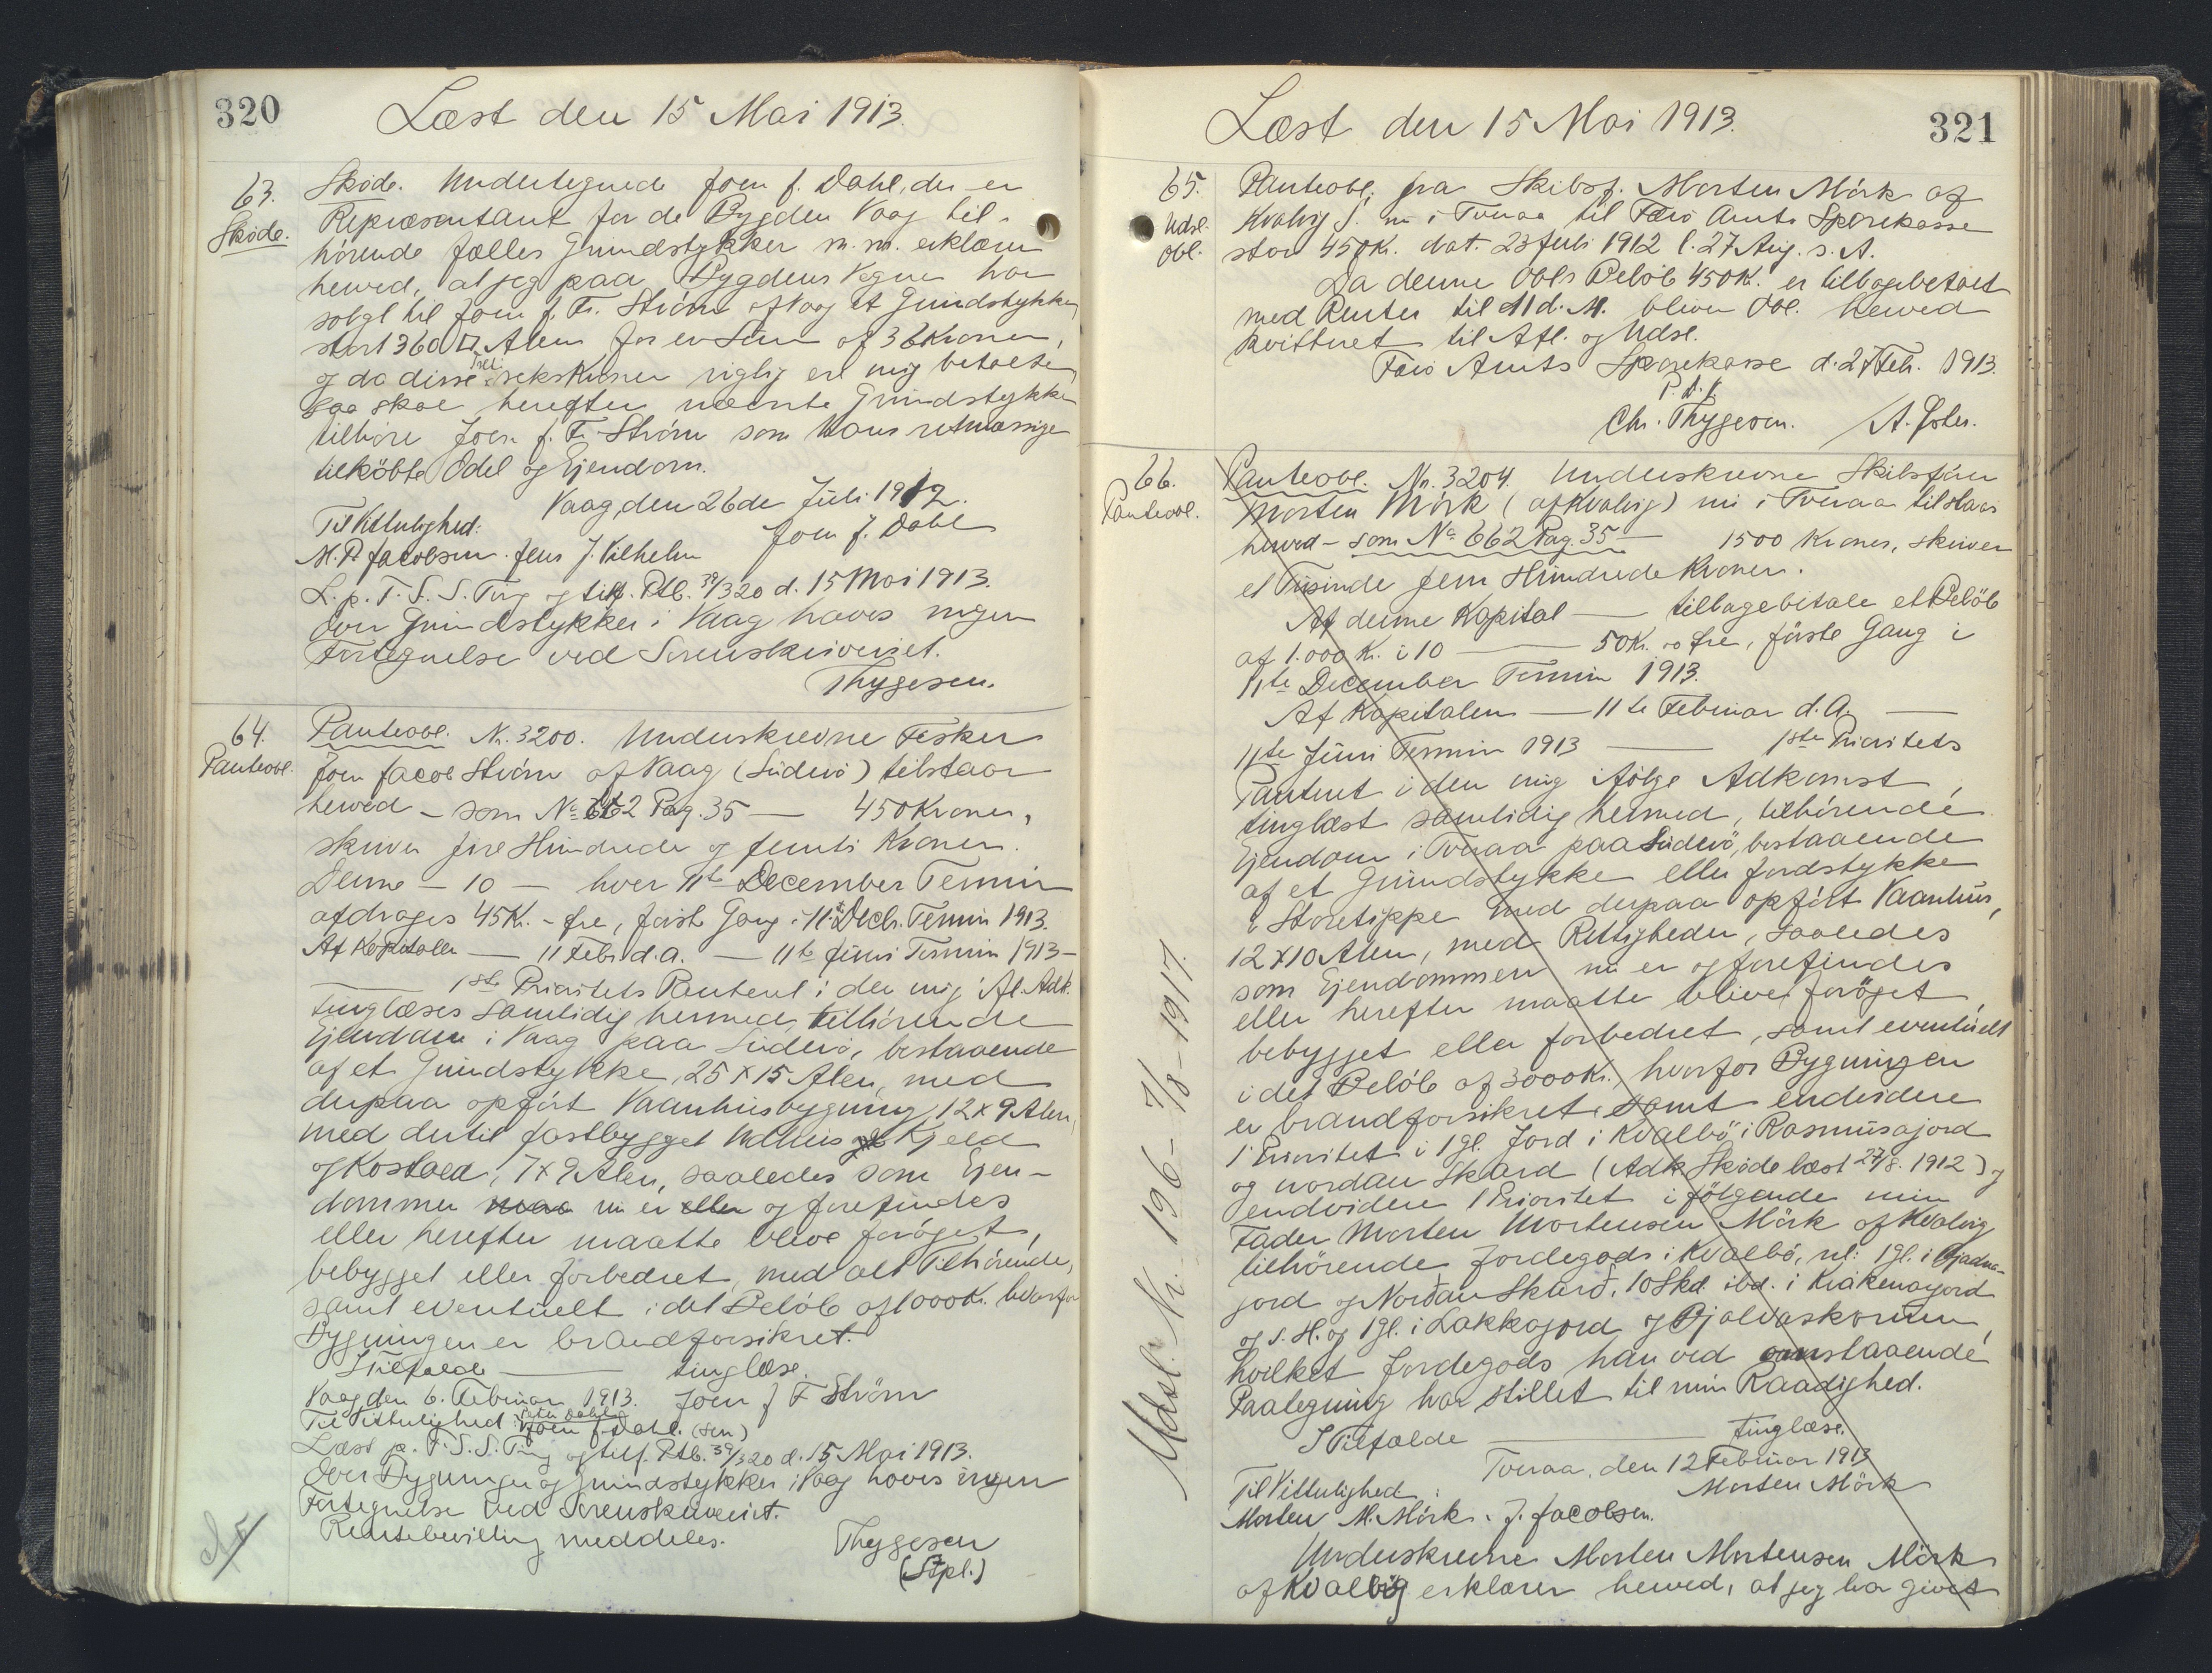 320
Læst den 15 Mai 1913.
63.
Skøde.
Skøde. Undertegnede Joen J. Dahl, der er
Repræsentant for de Bygden Vaag til-
hørende fælles Grundstykker m.m. erklærer
herved, at jeg paa Bygdens Vegne har
solgt til Joen J. Fr. Ström af Vaag et Grundstykke,
stort 360 □ Alen for en Sum af 36 Kroner,
og da disse treti seks Kroner rigtig ere mig betalte,
saa skal herefter nævnte Grundstykke
tilhøre Joen J. F. Ström som hans retmæssige
tilköbte Odel og Ejendom.
Vaag, den 26de Juli 1912.
Til Vitterlighed: Joen J. Dahl
M. P. Jacobsen. Jens J. Vilhelm
L. p. T. S. S. Ting og tilf. Ptb. 39/320 d. 15 Mai 1913.
Over Grundstykker i Vaag haves ingen
Fortegnelse ved Sorenskriveriet.
Thygesen.
64.
Panteobl.
Panteobl. Nr. 3200. Underskrevne Fisker
Joen Jacob Ström af Vaag (Süderö) tilstaar
herved - som No 662 Pag. 35 — 450 Kroner,
skriver fire Hundrede og femti Kroner.
Denne - 10 - hver 11te December Termin
afdrages 45 Kr. - fre, første Gang i 11te Decb. Termin 1913.
Af Kapitalen — 11 Febr. d.a. — 11te Juni Termin 1913 -
— 1ste Prioritets Panteret i den mig ifl. Adk.
tinglæses samtidig hermed, tilhørende
Ejendom i Vaag paa Süderö, bestaaende
af et Grundstykke, 25 x 15 Alen, med
derpaa opført Vaanhusbygning, 12 x 9 Alen,
med dertil fastbygget Udhus Kjeld
og Kostald, 7 x 9 Alen, saaledes som Ejen-
dommen nu er og forefindes
eller herefter maatte blive forøget,
bebygget eller forbedret, med alt Tilhørende,
samt eventuelt i det Beløb af 1000 Kr. hvorfor
Bygningen er brandforsikret.
I Tilfælde — tinglæse.
Vaag, den 6. Februar 1913. Joen J F Ström
Til Vitterlighed: Joen J. Dahl. (sen)
Læst p. T. S. S. Ting og tilf. Ptb. 39/320 d. 15 Mai 1913.
Over Bygninger og Grundstykker i Vaag haves ingen
Fortegnelse ved Sorenskriveriet.
Rentebevilling meddeles. Thygesen
(Stpl.)
321
Læst den 15 Mai 1913.
65.
Udsl.
Obl.
Panteobl. fra Skibsf. Morten Mörk af
Kvalvig S. nu i Tveraa til Færö Amts Sparekasse
stor 450 Kr. dat. 23 Juli 1912 l. 27 Aug. s. A.
Da denne Obls Beløb 450 Kr. er tilbagebetalt
med Renter til 11 d. M. bliver Obl. herved
kvitteret til Afl. og Udsl.
Færö Amts Sparekasse d. 27 Feb. 1913.
Chr. Thygesen.
66.
Panteobl.
Panteobl. Nr. 3204. Underskrevne Skibsfører
Morten Mörk (af Kvalvig) nu i Tveraa tilstaar
herved - som No 662 Pag. 35 — 1500 Kroner, skriver
et Tusinde fem Hundrede Kroner.
Af denne Kapital — tilbagebetale et Beløb
af 1.000 Kr. i 10 — 50 Kr. fre, første Gang i
11te December Termin 1913.
Af Kapitalen — 11te Februar d. A. —
11te Juni Termin 1913 — 1ste Prioritets
Panteret i den mig ifølge Adkomst,
tinglæst samtidig hermed, tilhørende
Ejendom i Tveraa paa Süderö, bestaaende
af et Grundstykke eller Jordstykke
i Storetippe med derpaa opført Vaanhus,
12 x 10 Alen, med Rettigheder, saaledes
som Ejendommen nu er og forefindes
eller herefter maatte blive forøget,
bebygget eller forbedret, samt eventuelt
i det Beløb af 3000 Kr., hvorfor Bygningen
er brandforsikret samt endvidere
1 Prioritet i 1 gl. Jord i Kvalbö i Rasmusajord
og nordan Skard (Adk. Skøde læst 27/8. 1912) og
endvidere 1 Prioritet i følgende min
Fader Morten Mortensen Mörk af Kvalvig
tilhørende Jordegods i Kvalbö, nl: 1 gl. i
jord og Norðan Skarð, 10 Skd. ibd. i Krákenajord
og S. H. og 1 gl. i Lakkajord og Bjalvaskorum,
hvilket Jordegods han ved omstaaende
Paategning har stillet til min Raadighed.
I Tilfælde — tinglæse.
Tveraa, den 12 Februar 1913
Til Vitterlighed: Morten Mörk
Morten M. Mörk. J. Jacobsen.
Underskrevne Morten Mortensen Mörk
af Kvalvig erklærer herved, at jeg har givet
Udsl. Nr. 196 - 7/8 - 1917.